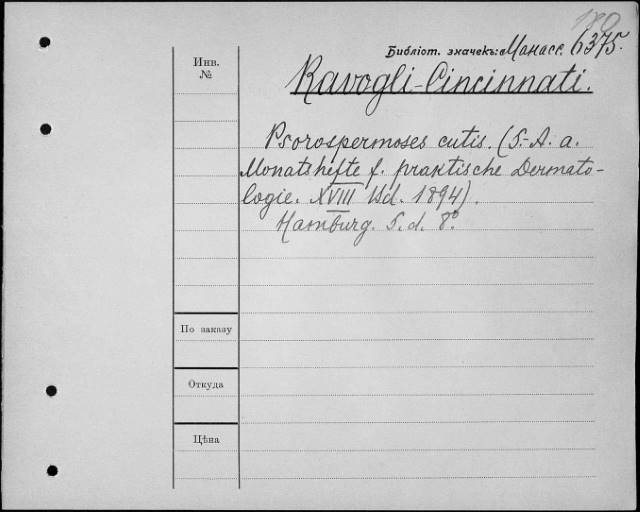 180
Библіот. значекъ: Манасс. 6375.
Инв.
№
Ravogli-Cincinnati.
Psorospermoses cutis. (S.-A. a.
Monatshefte f. praktische Dermato-
logie. XVIII Bd. 1894).
Hamburg. S. d. 8°.
По заказу
Откуда
Цѣна